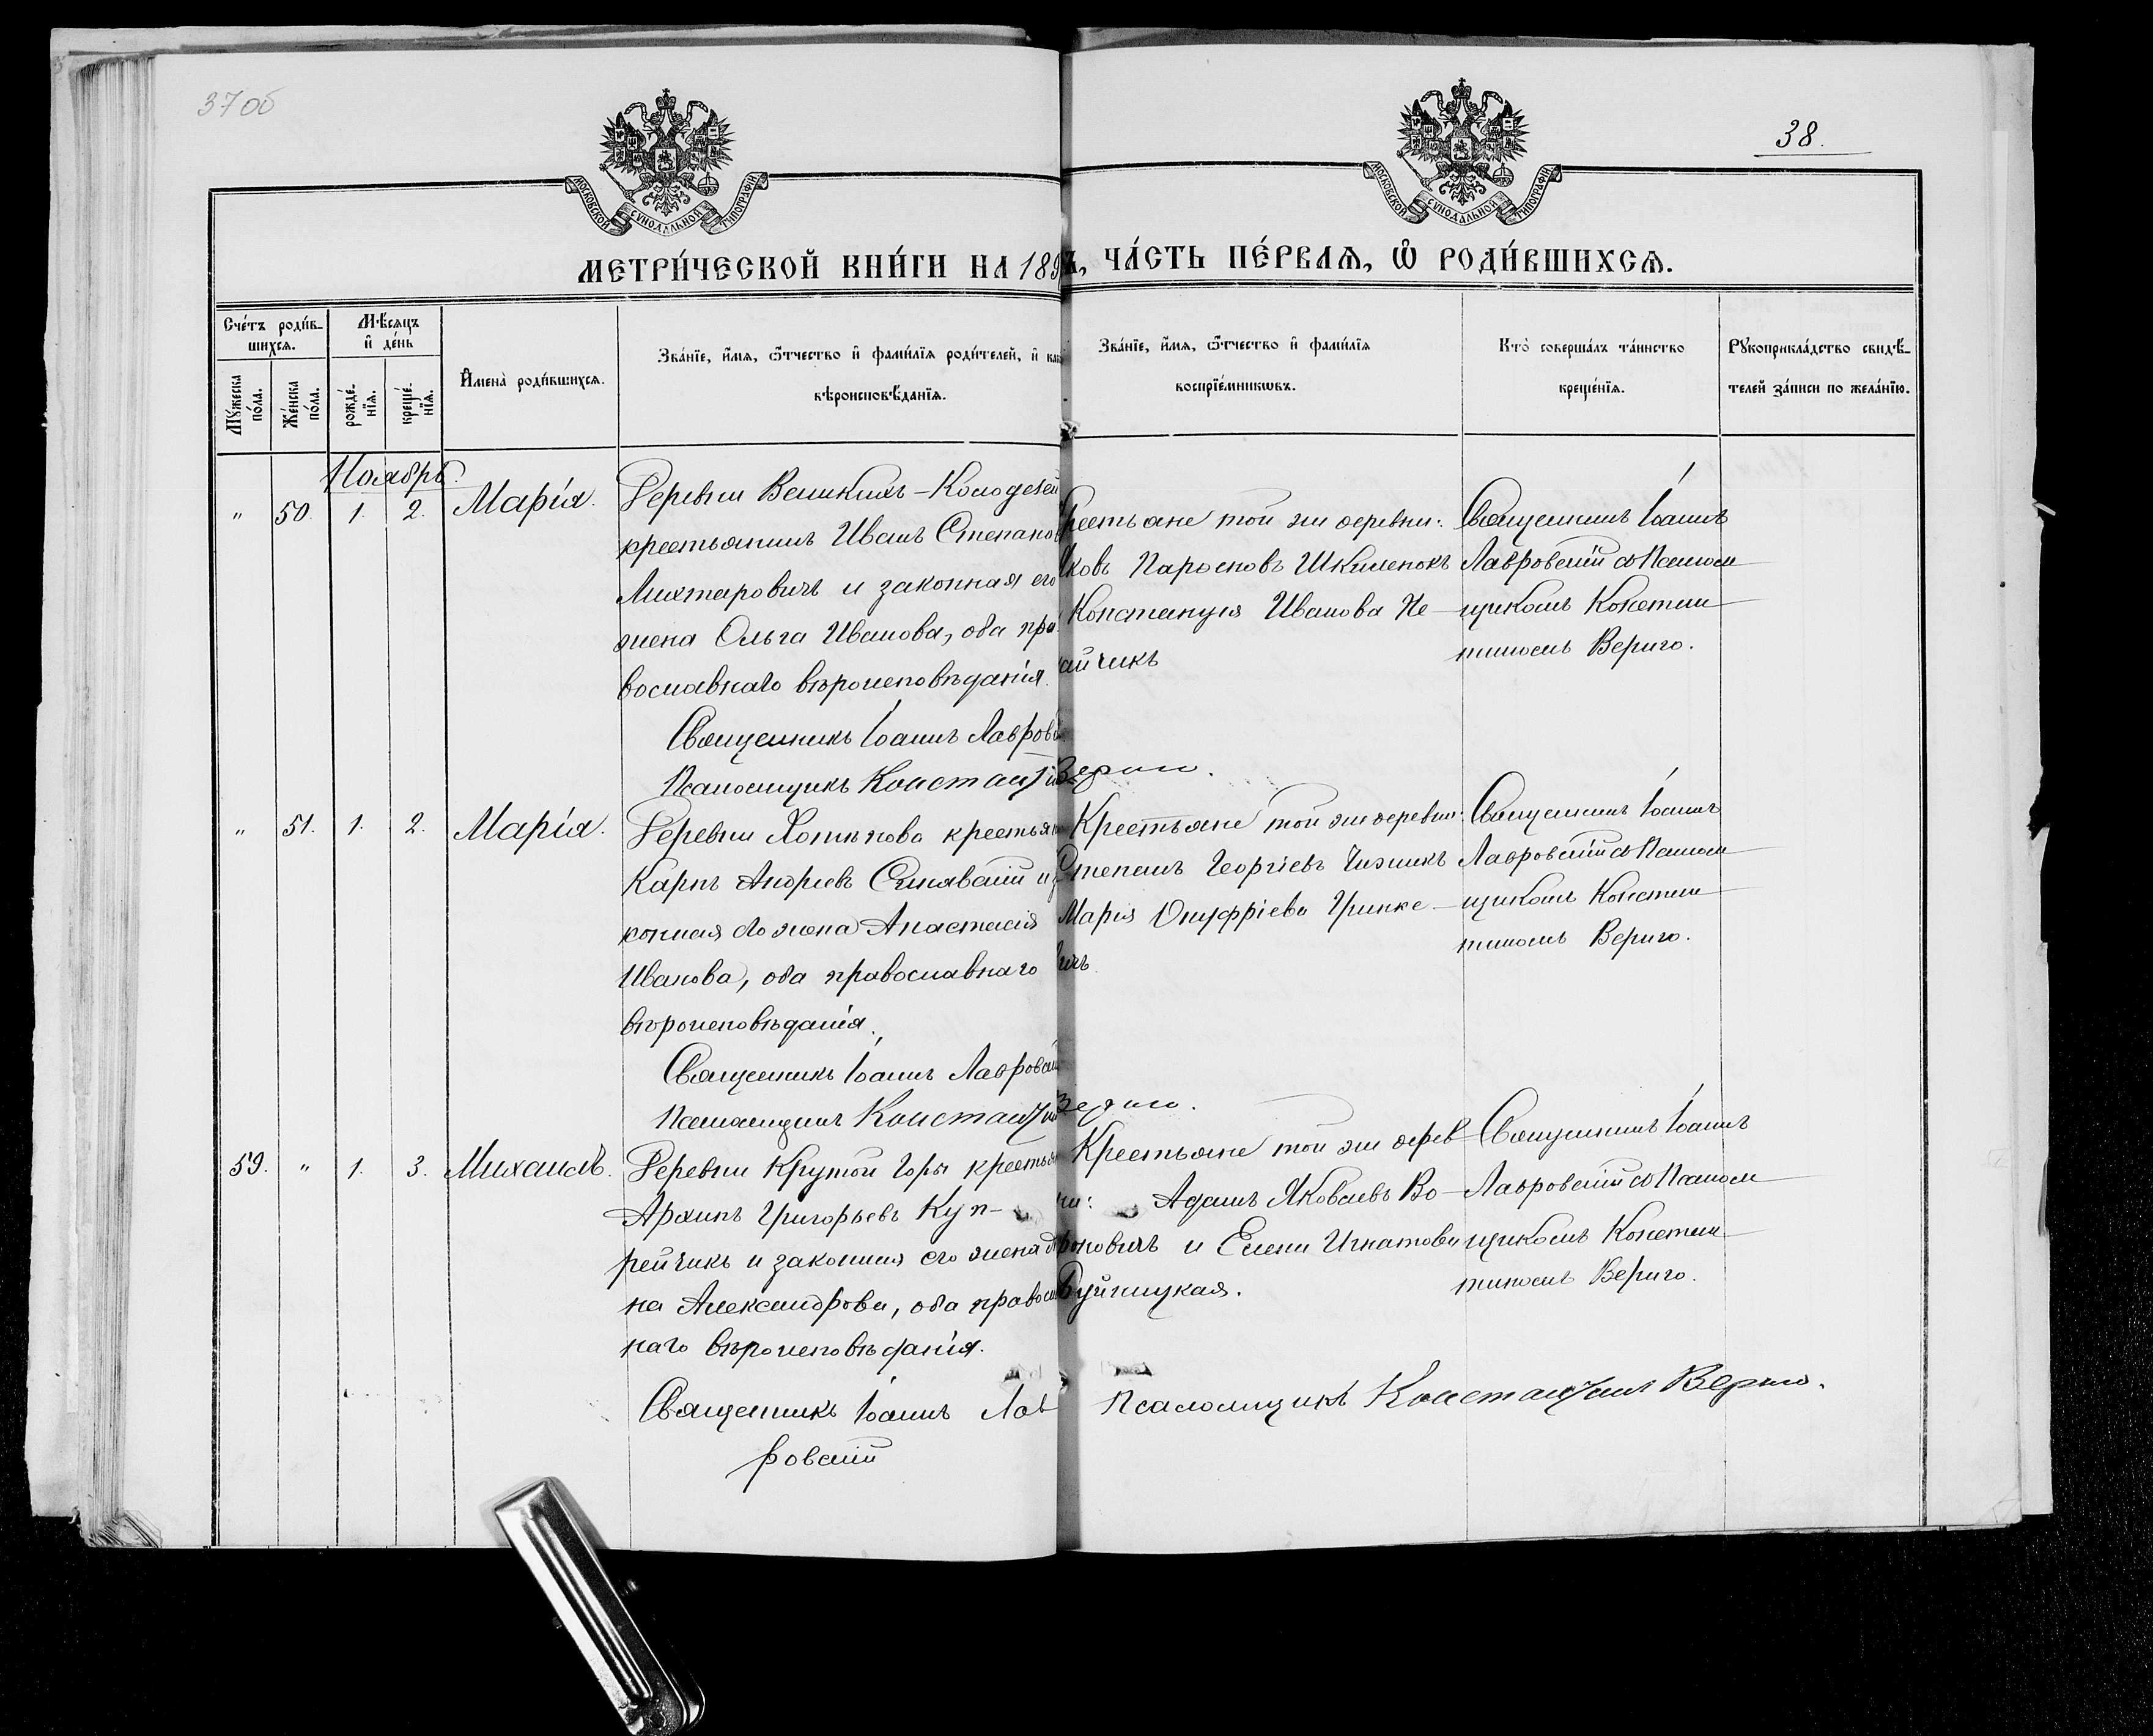 37 об
38.
МОСКОВСКОЙ СѴНОДАЛЬНОЙ ТИПОГРАФІИ
МОСКОВСКОЙ СѴНОДАЛЬНОЙ ТИПОГРАФІИ
МЕТРИ́ЧЕСКОЙ КНИ́ГИ НА 189
Ъ, ЧА́СТЬ ПЕ́РВАѦ, Ѿ РОДИ́ВШИХСѦ.
Сче́тъ роди́в-
шихсѧ.
Мꙋ́жеска
по́ла.
Же́нска
по́ла.
Мѣ́сѧцъ
и҆ де́нь
рожде́-
нїѧ.
креще́-
нїѧ.
И҆мена̀ роди́вшихсѧ.
Зва́нїе, и҆́мѧ, ѻ҆́тчество и҆ фами́лїѧ роди́телей, и҆
вѣроисповѣ́данїѧ.
Зва́нїе, и҆́мѧ, ѻ҆́тчество и҆ фами́лїѧ
воспрїе́мникѡвъ.
Кто̀ соверша́лъ та́инство
креще́нїѧ.
Рꙋкоприкла́дство свидѣ́-
телей за́писи по жела́нїю.
Ноябрь.
" 50. 1. 2. Марія.
Деревни Великихъ-Колодезей
крестьянинъ Иванъ Степанов
Михтаровичъ и законная его
жена Ольга Иванова, оба пра
вославнаго вѣроисповѣданія.
Священникъ Іоаннъ Лавров
Псаломщикъ Константин
Крестьяне той же деревни:
Яковъ Шкиленокъ
Констанція Иванова Не-
айчикъ
Верига.
Священникъ Іоаннъ
Лавровскій съ Псалом
щикомъ Констан
тиномъ Вериго.
" 51. 1. 2. Марія.
Деревни Хотѣнова крестьян
Карпъ Андреевъ Синявскій и за
конная его жена Анастасія
Иванова, оба православнаго
вѣроисповѣданія.
Священникъ Іоаннъ Лавровскій
Псаломщикъ Константин
Крестьяне той же деревни:
Степанъ Георгіевъ Чижикъ
Марія Онуфріева Гринке-
вичъ.
Верига.
Священникъ Іоаннъ
Лавровскій съ Псалом
щикомъ Констан
тиномъ Вериго.
59. " 1. 3. Михаилъ.
Деревни Крутой Горы крестьян
Архипъ Григорьевъ Куп-
рейчикъ и законная его жена
на Александрова, оба правосла
наго вѣроисповѣданія.
Священникъ Іоаннъ Лав
ровскій
Крестьяне той же дерев
ни: Адамъ Яковлевъ Во-
роновичъ и Елена Игнатова
Буйницкая.
Псаломщикъ Константинъ Верига.
Священникъ Іоаннъ
Лавровскій съ Псалом
щикомъ Констан
тиномъ Вериго.